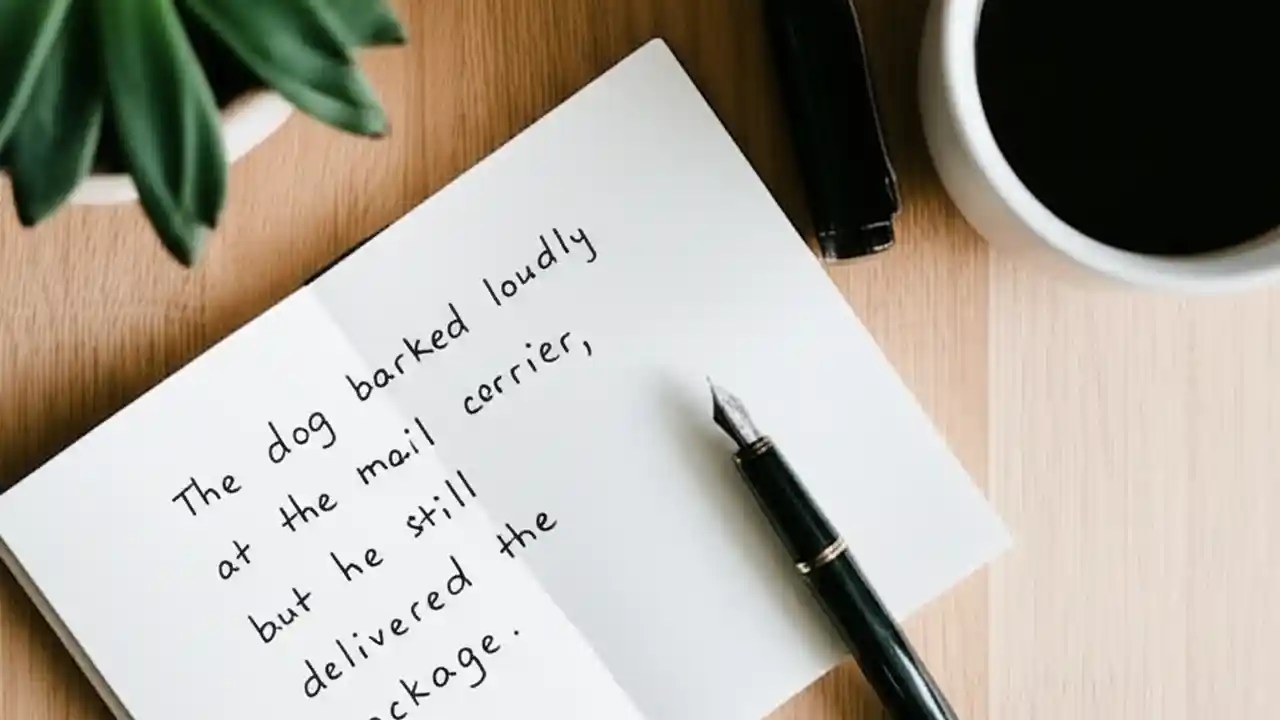 The dog barked loudly
at the mail cerrier,
but he still
delivered the
package.